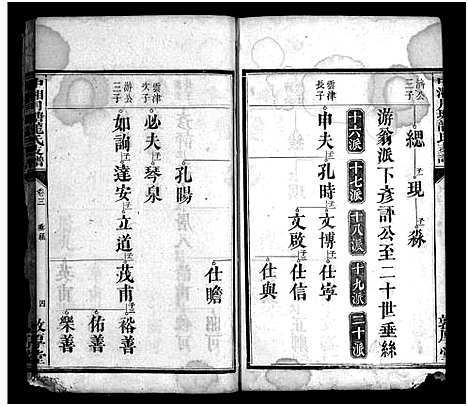 游公
三子
緦 現 淼
游翁派下彥評公至二十世垂絲
十六派 十七派 十八派 十九派 二十派
雲津
長子
申夫 孔時 文博 仕寧
文啟 仕信
仕與
孔陽 仕瞻
雲津
次子
必夫 琴泉
游公
三子
如詢 達安 立道 茂甫 裕善
佑善
樂善
卷三
垂絲
四
敦厚堂